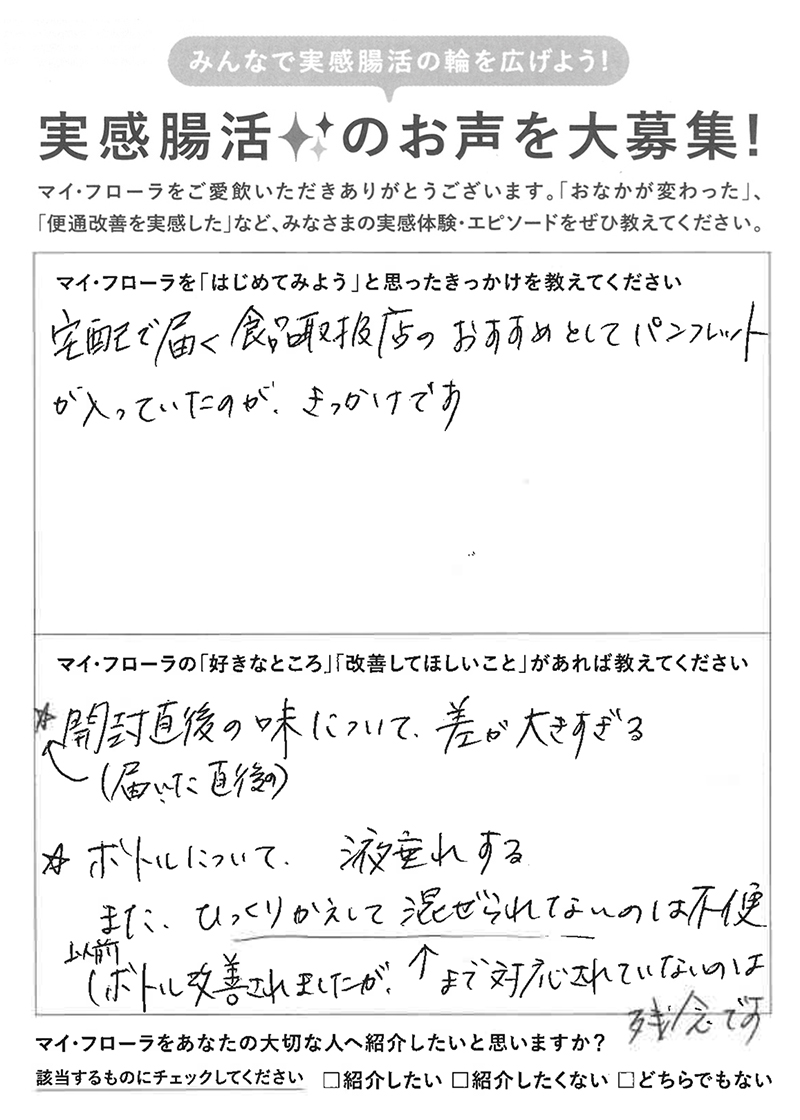 みんなで実感腸活の輪を広げよう!
実感腸活のお声を大募集!
マイ・フローラをご愛飲いただきありがとうございます。「おなかが変わった」、
「便通改善を実感した」など、みなさまの実感体験・エピソードをぜひ教えてください。
マイ・フローラを「はじめてみよう」と思ったきっかけを教えてください
宅配で届く食品取扱店のおすすめとしてパンフレット
が入っていたのが、きっかけです
マイ・フローラの「好きなところ」「改善してほしいこと」があれば教えてください
☆開封直後の味について、差が大きすぎる
(届いた直後の)
☆ボトルについて、液垂れする
また、ひっくりかえして混ぜられてないのは不便
以前
(ボトル改善されましたが、↑まで対応されていないのは
残念です
マイ・フローラをあなたの大切な人へ紹介したいと思いますか?
該当するものにチェックしてください □紹介したい □紹介したくない □どちらでもない